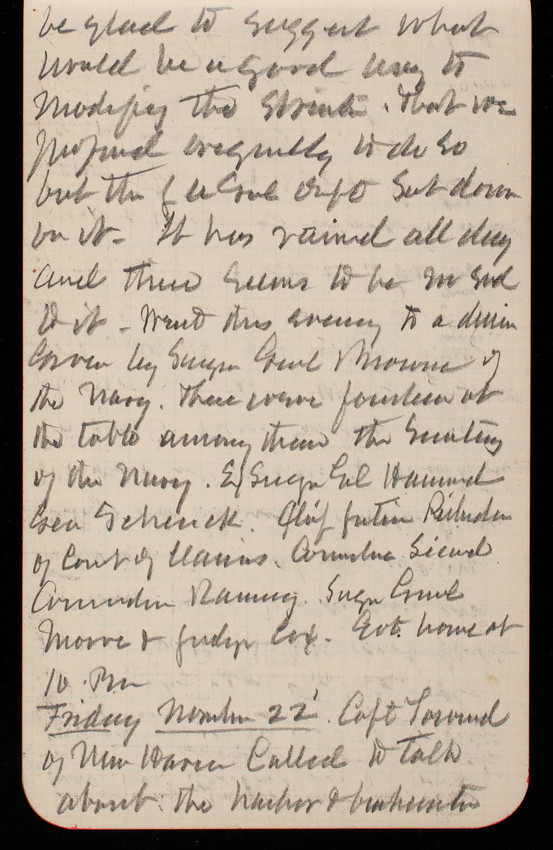 be glad to suggest what
would be a good way to
modify the Strictr. that we
proposed originally to do so
but the Genl Dept Sat down
on it - It has rained all day
and there seems to be no end
to it - Went this evening to a dinner
Given by Surgn Genl Browne of
the Navy. There were fourteen at
the table among them the Secretary
of the Navy. Ex Surgn Gnl Hammond
Gen Schenck. Chief Justice Richardson
of Court of Claims. Commodre Sicard
Commodre Ramsey. Surgn Genl
Moore & Judge Cox. Got home at
10 PM
Friday November 22' Capt
of New Haven Called to talk
about the harbor & breakwater